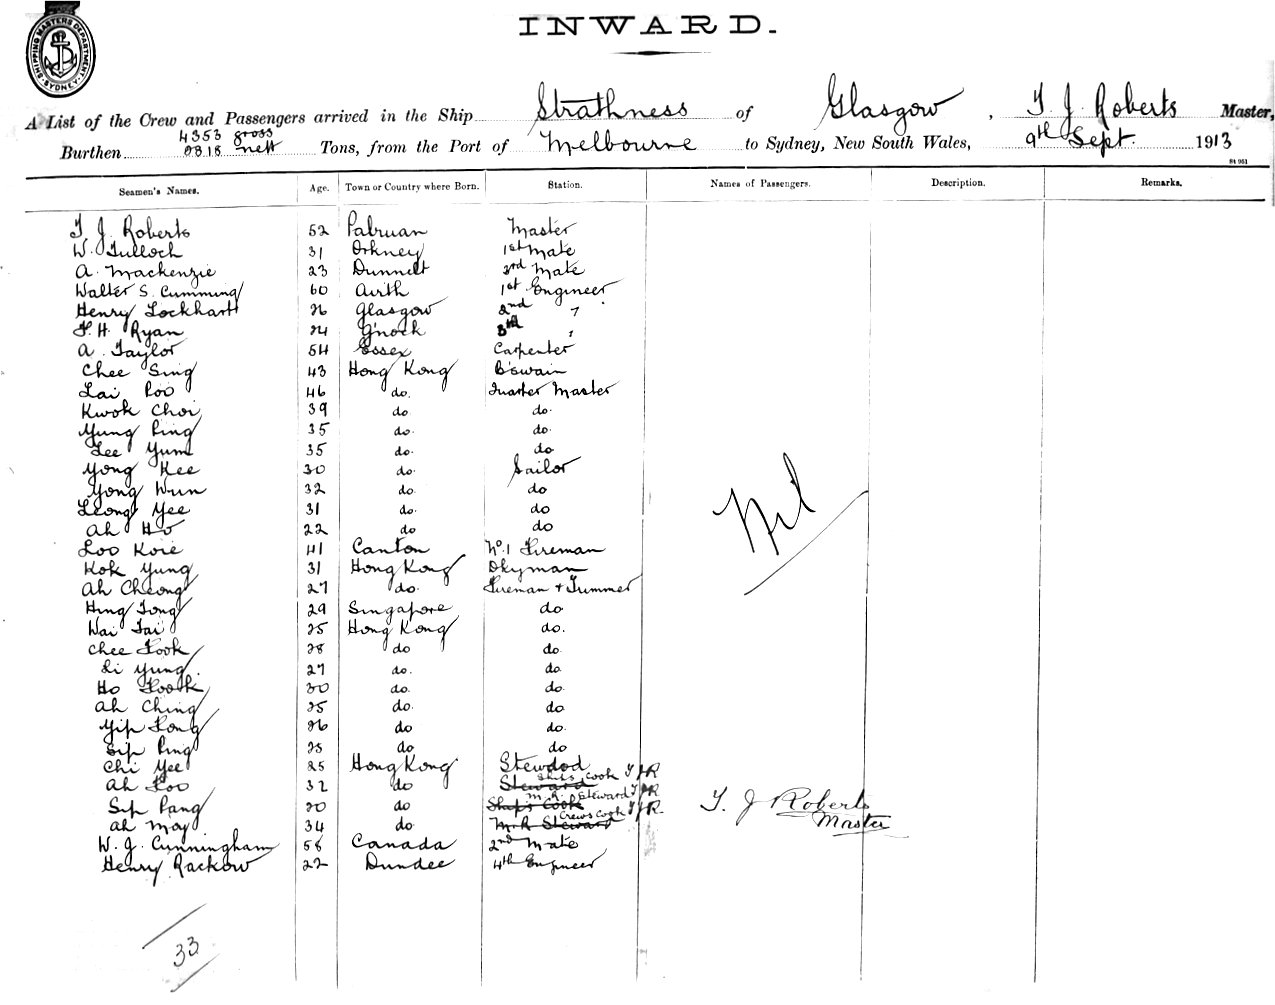 SHIPPING MASTERS DEPARTMENT. SYDNEY.
INWARD.
A List of the Crew and Passengers arrived in the Ship Strathness of Glasgow, T. J. Roberts Master,
Burthen 4353 gross nett Tons, from the Port of Melbourne to Sydney, New South Wales, 9th Sept. 1913
Seamen's Names. Age. Town or Country where Born. Station. Names of Passengers. Description. Remarks.
T. J. Roberts 52 Master
W. Tulloch 31 Orkney 1st Mate
A. Mackenzie 23 Dunnett 3rd Mate
Walter S. Cumming 60 Airth 1st Engineer
Henry Lockhart 26 Glasgow 2nd "
F. H. Ryan 24 G'nock 3rd "
A. Taylor 54 Essex Carpenter
Chee Sing 43 Hong Kong B'swain
Lai Poo 46 do. Quarter Master
Kwok Choi 39 do do.
Yung Ping 35 do. do.
Lee Yum 35 do. do
Yong Kee 30 do. Sailor
Yong Wun 32 do do
Leong Yee 31 do. do
Ah Ho 22 do do
Loo Koie 41 Canton No. 1 Fireman
Kok Yung 31 Hong Kong Dkyman
Ah Cheong 27 do. Fireman & Trimmer
Hing Tong 29 Singapore do
Wai Tai 25 Hong Kong do.
Chee Fook 28 do do.
Li Yung 27 do. do.
Ho Fook 30 do. do.
Ah Ching 25 do. do.
Yip Fong 26 do do.
Sip Ping 25 do do
Chi Yee 25 Hong Kong Steward
Ship's Cook TJR
Ah Foo 32 do Steward
M.R. Steward TJR
Sip Pang 20 do Ship's Cook
Crews Cook TJR
Ah May 34 do. M.R. Steward
W. J. Cunningham 58 Canada 2nd Mate
Henry Rackow 22 Dundee 4th Engineer
Nil
T. J. Roberts
Master
33